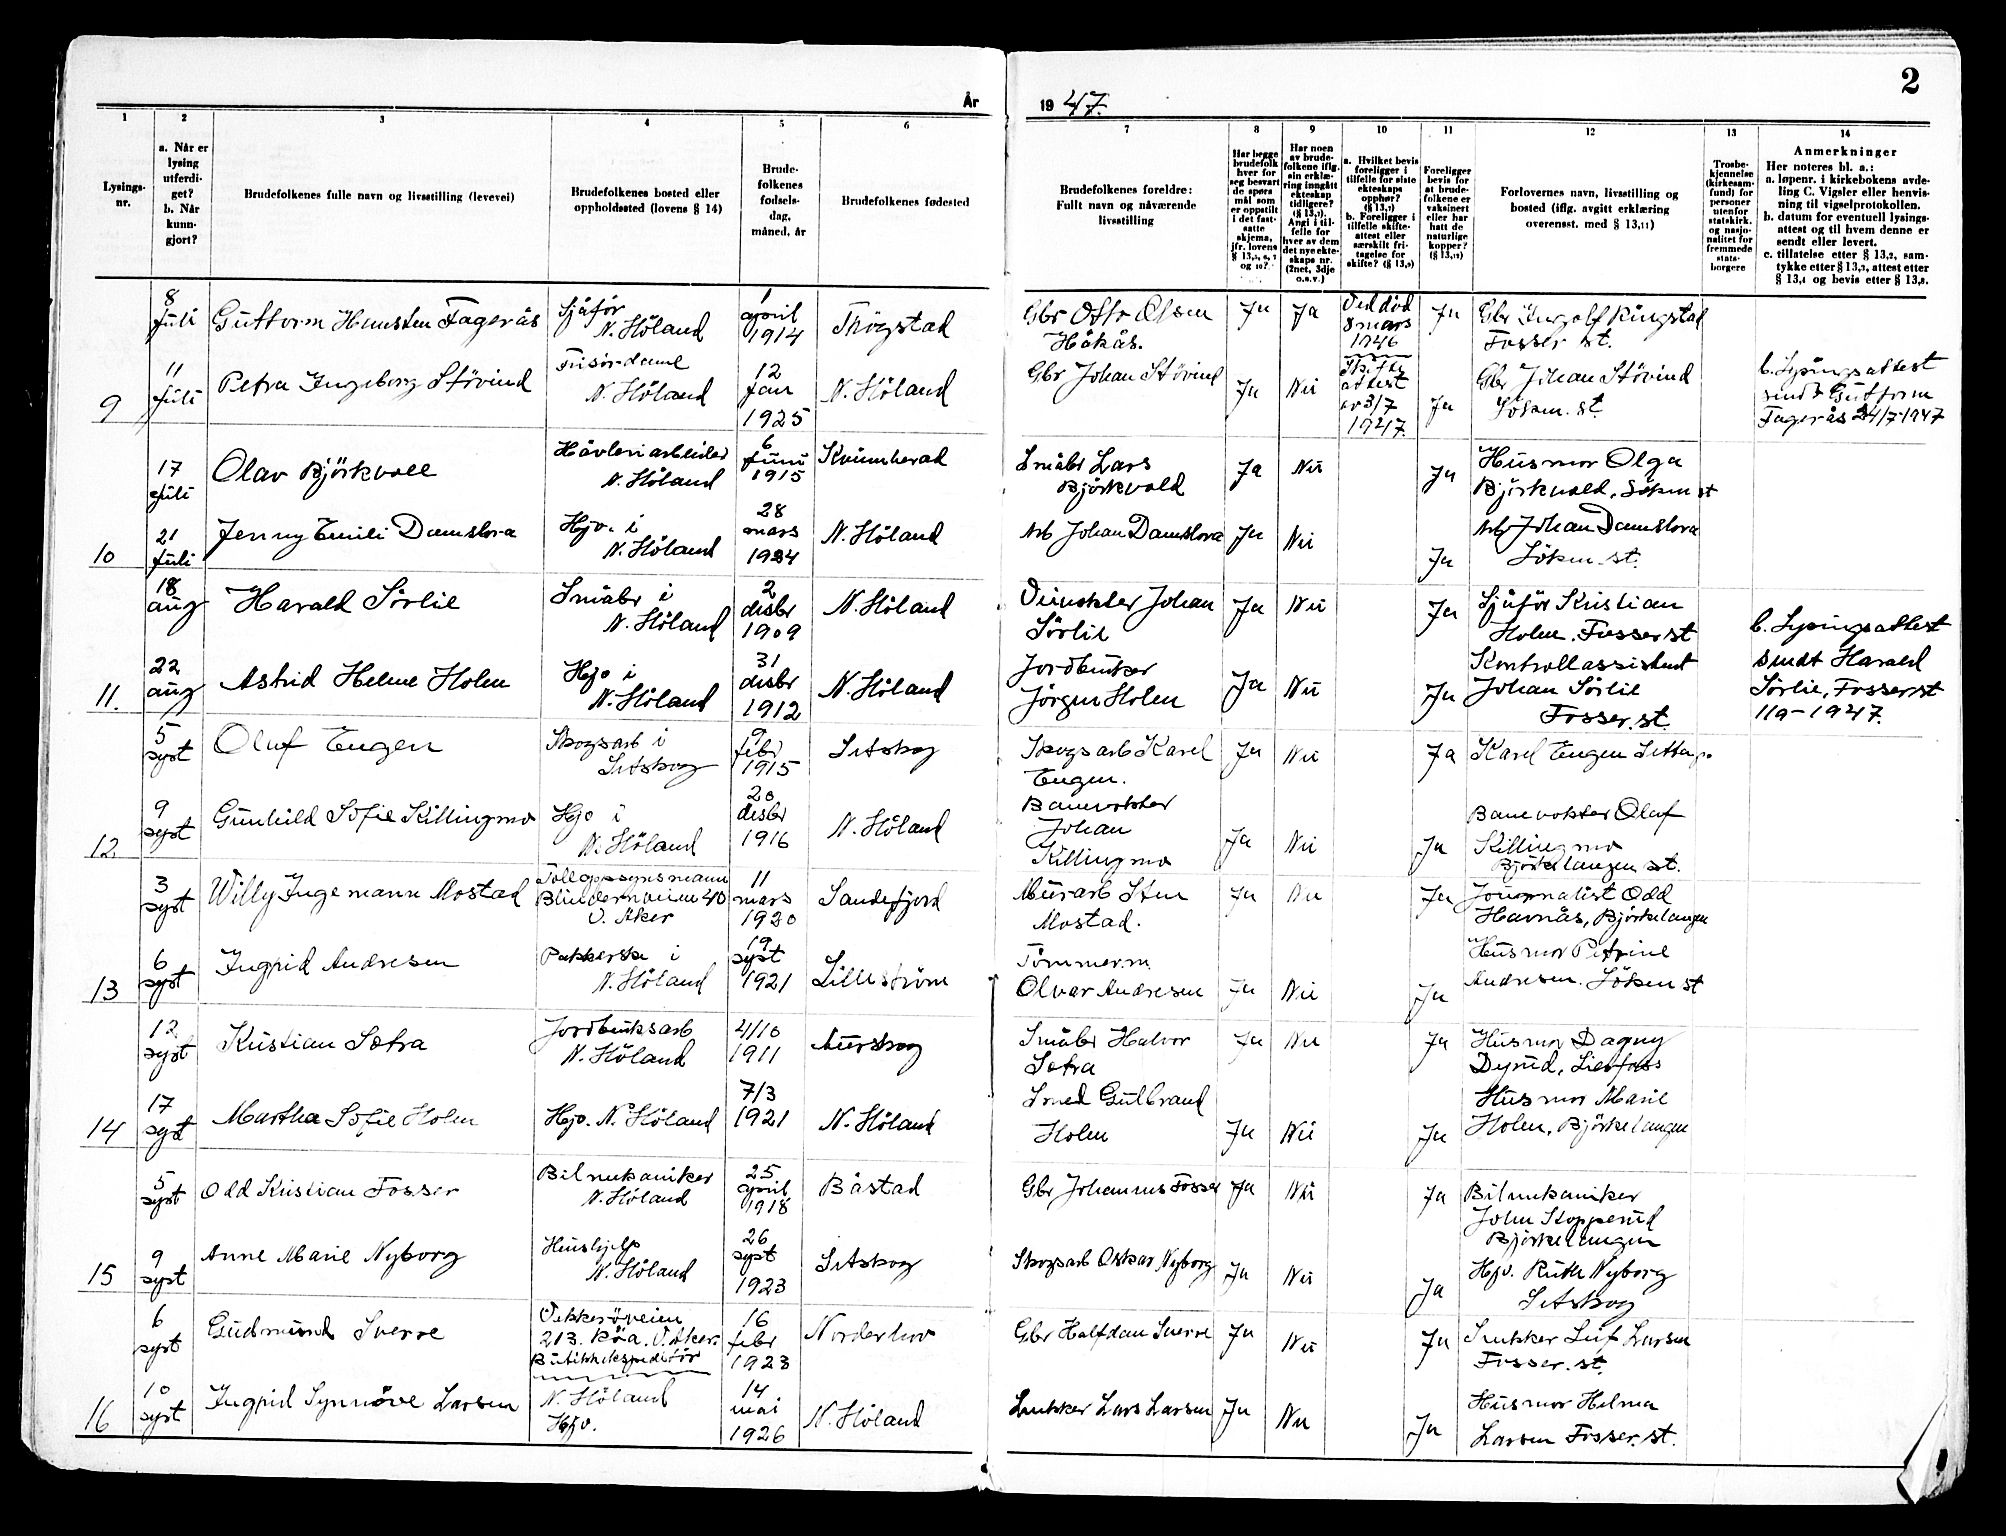 2
År
19 47.
1
2
3
4
5
6
7
8
9
10
11
12
13
14
Lysings-
nr.
a. Når er
lysing
utferdi-
get?
b. Når
kunn-
gjort?
Brudefolkenes fulle navn og livsstilling (levevei)
Brudefolkenes bosted eller
oppholdssted (lovens § 14)
Brude-
folkenes
fødsels-
dag,
måned, år
Brudefolkenes fødested
Brudefolkenes foreldre:
Fullt navn og nåværende
livsstilling
Har begge
brudefolk
hver for
seg besvart
de spørs
mål som
er oppstilt
i det fast-
satte
skjema,
jfr. lovens
Har noen
av brude-
folkene iflg.
sin erklæ-
ring inngått
ekteskap
tidligere?
(§ 13,7).
Angi i til-
felle for
hver av dem
det nye ekte-
skaps nr.
(2net, 3dje
o.s.v.)
a. Hvilket bevis
foreligger i
tilfelle for siste
ekteskaps
opphør?
(§ 13,7)
b. Foreligger i
tilfelle skifte-
attest eller
særskilt fri-
tagelse for
skifte? (§ 13,8)
Foreligger
bevis for
at brude-
folkene er
vaksinert
eller har
hatt de
naturlige
kopper?
Forlovernes navn, livsstilling og
bosted (iflg. avgitt erklæring
overensst. med § 13,11)
Trosbe-
kjennelse
(kirkesam-
fund) for
personer
utenfor
statskirk.
og nasjo-
nalitet for
fremmede
stats-
borgere
Anmerkninger
Her noteres bl. a.:
a. løpenr. i kirkebokens avde-
ling C. Vigsler eller henvis-
ning til vigselprotokollen.
b. datum for eventuell lysings-
attest og til hvem denne er
sendt eller levert.
c. tillatelse etter § 13,2, sam-
tykke etter § 13,3, attest etter
§ 13,4 og bevis etter § 13,8.
8
juli
Guttorm Hansten Fagerås
Sjåför
N. Höland
1
april
1914
Trögstad
Gbr Otto Olsen
Håkås.
Ja
Ja
Ved död
8 mars
1946
Ja
Gbr Ingolf Ringstad
Fosser st.
9
11
juli
Petra Ingeborg Stövind
Frisördame
N. Höland
12
jan
1925
N. Höland
Gbr Johan Stövind
Ja
Nei
Skifte
attest
av 3/7
1947.
Ja
Gbr Johan Stövind
Löken. st.
b. Lysingsattest
sendt Guttorm
Fagerås 24/7-1947
17
juli
Olav Björkvoll
Hövleriarbeider
N. Höland
6
juni
1915
Kvinnherad
Småbr Lars
Björkvold
Ja
Nei
Ja
Husmor Olga
Björkvold, Löken st
10
21
juli
Jenny Emili Damstora
Hjv. i
N. Höland
28
mars
1924
N. Höland
Arb Johan Damstora
Ja
Nei
Ja
Arb Johan Damstora
Löken. st.
18
aug
Harald Sörlie
Småbr i
N. Höland
2
desbr
1909
N. Höland
Veivokter Johan
Sörlie
Ja
Nei
Ja
Sjåför Kristian
Holen, Fosser st
11.
22
aug
Astrid Helene Holen
Hjv i
N. Höland
31
desbr
1912
N. Höland
Jordbruker
Jörgen Holen
Ja
Nei
Ja
Kontrollassistent
Johan Sörlie
Fosser. st.
b. Lysingsattest
sendt Harald
Sörlie, Fosser st
11a-1947.
5
sept
Oluf Engen
Skogsarb i
Setskog
9
febr
1915
Setskog
Skogsarb Karel
Engen.
Ja
Nei
Ja
Karel Engen
12
9
sept
Gunhild Sofie Killingmo
Hjv i
N. Höland
20
desbr
1916
N. Höland
Banevokter
Johan
Killingmo
Ja
Nei
Ja
Banevokter Olaf
Killingmo
Björkelangen st.
3
sept
Willy Ingemann Mostad
Tolloppsynsmann
Blindernveien 40
V. Aker
11
mars
1920
Sandefjord
Murarb Sten
Mostad.
Ja
Nei
Ja
Journalist Odd
Havnås, Björkelangen
13
6
sept
Ingrid Andresen
Pakkerske i
N. Höland
19
sept
1921
Lilleström
Tömmerm.
Olvar Andresen
Ja
Nei
Ja
Husmor Petrine
Andresen. Löken st
12
sept
Kristian Sætra
Jordbruksarb
N. Höland
4/10
1911
Aurskog
Småbr Halvor
Sætra
Ja
Nei
Ja
Husmor Dagny
Dyrud, Lierfoss
14
17
sept
Martha Sofie Holen
Hjv. N. Höland
7/3
1921
N. Höland
Smed Gulbrand
Holen
Ja
Nei
Ja
Husmor Marie
Holen, Björkelangen
5
sept
Odd Kristian Fosser
Bilmekaniker
N. Höland
25
april
1918
Båstad
Gbr Johannes Fosser
Ja
Nei
Ja
Bilmekaniker
John Kopperud
Björkelangen
15
9
sept
Anne Marie Nyborg
Hushjelp
N. Höland
26
sept
1923
Setskog
Skogsarb Oskar Nyborg
Ja
Nei
Ja
Hjv. Ruth Nyborg
Setskog
6
sept
Gudmund Sverre
Vekkeröveien
213. Röa. V. Aker.
Butikkekspeditör
16
febr
1923
Norderhov
Gbr Halfdan Sverre
Ja
Nei
Ja
Snekker Leif Larsen
Fosser. st.
16
10
sept
Ingrid Synnöve Larsen
N. Höland
Hjv.
14
mai
1926
N. Höland
Snekker Lars Larsen
Ja
Nei
Ja
Husmor Helma
Larsen Fosser. st.